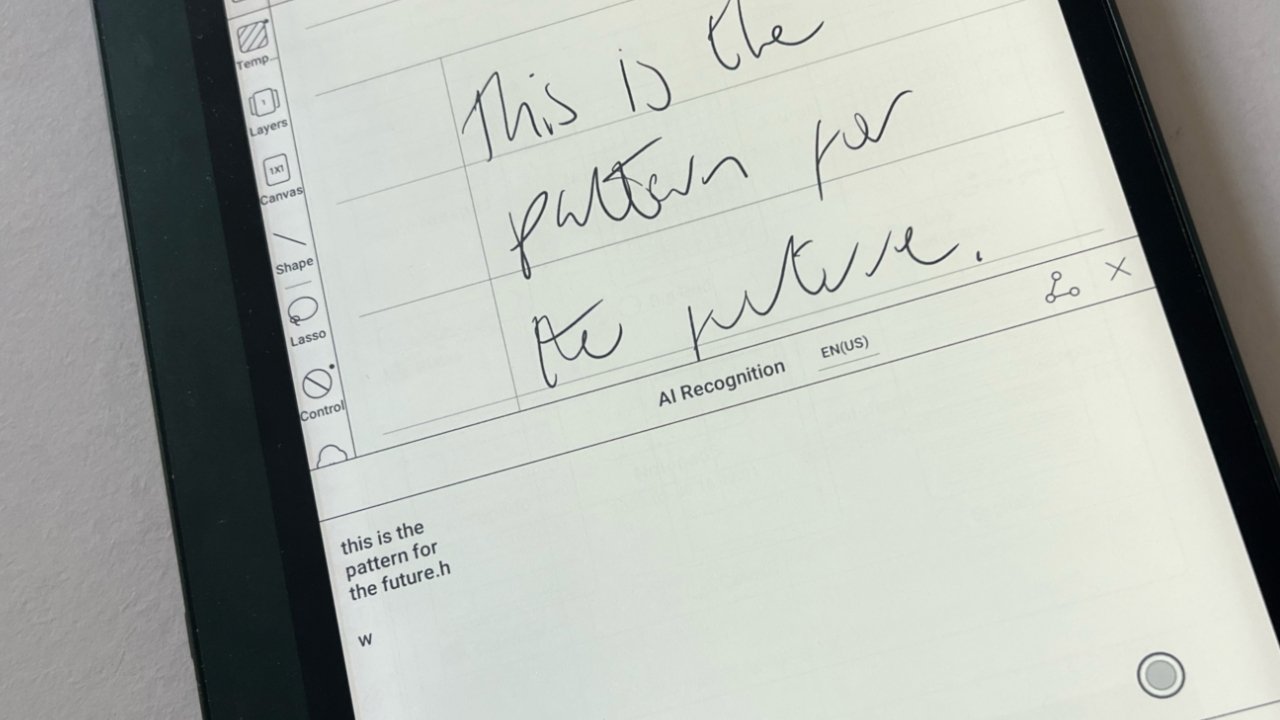 Temp...
Layers
1X1
Canvas
Shape
Lasso
Control
This is the
pattern for
the future.
AI Recognition EN(US)
this is the
pattern for
the future.h
w